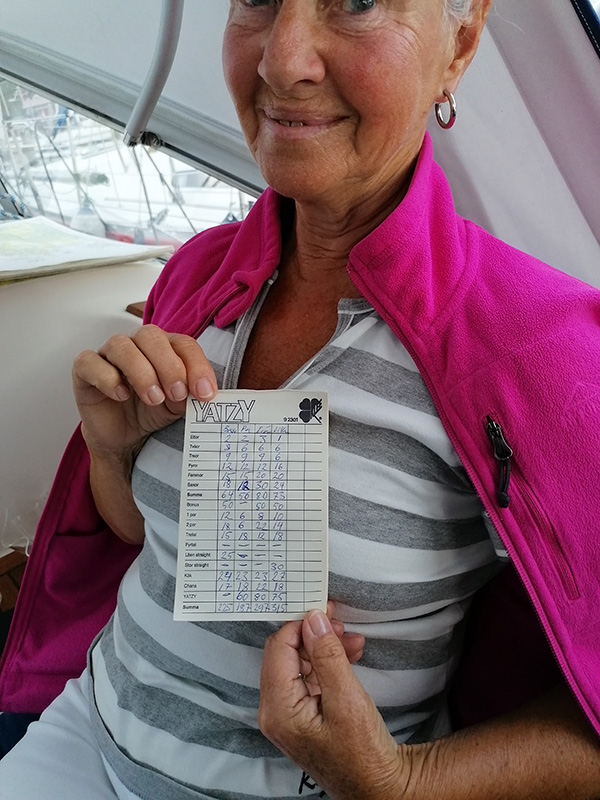 YATZY 92301
Ettor 2 2 3 1
Tvåor 8 6 6 6
Treor 9 9 9 6
Fyror 12 12 12 16
Femmor 15 15 20 20
Sexor 18 12 30 24
Summa 64 56 80 73
Bonus 50 – 50 50
1 par 12 6 8 10
2 par 18 6 22 14
Tretal 15 18 12 18
Fyrtal – – – –
Liten straight 25 – – –
Stor straight – – – 30
Kåk 24 23 23 27
Chans 17 18 22 18
YATZY – 60 80 75
Summa 225 187 297 315